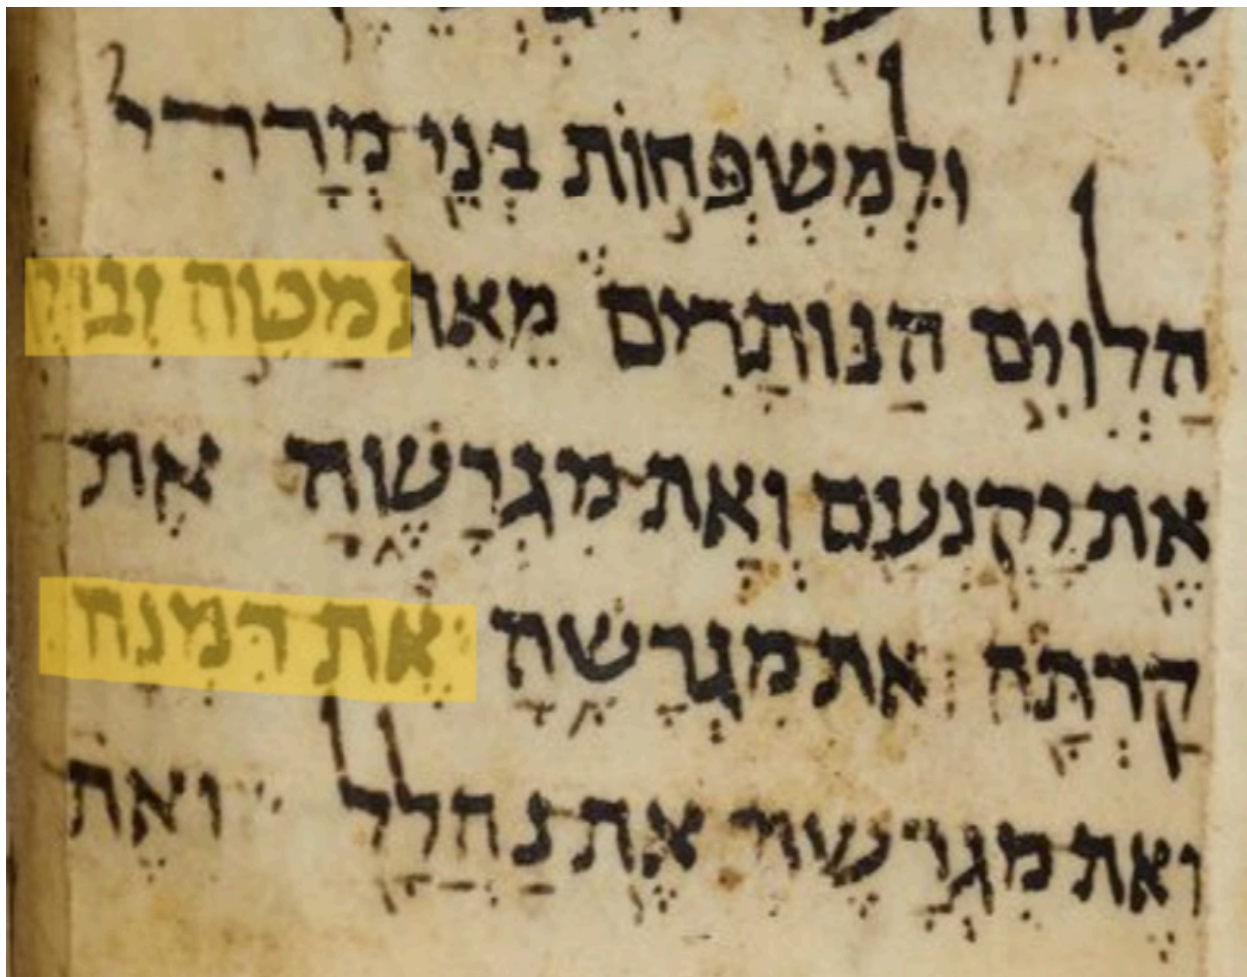 וּלְמִשְׁפְּחוֹת בְּנֵי מְרָרִי
הַלְוִיִּם הַנּוֹתָרִים מֵאֵת מַטֵּה
אֶת יָקְנְעָם וְאֶת מִגְרָשֶׁהָ אֶת
קַרְתָּה אֶת מִגְרָשֶׁהָ׃ אֶת דִּמְנָה
וְאֶת מִגְרָשֶׁהָ אֶת נַהֲלָל וְאֶת